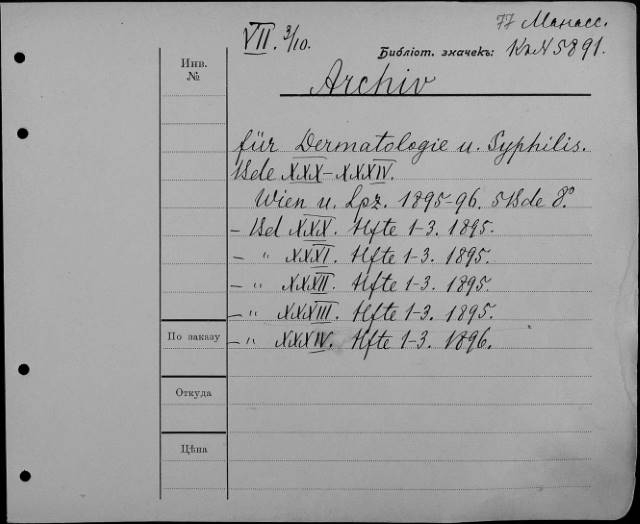 77 Манасс.
VII. 3/10.
Библіот. значекъ: К. N 5891.
Инв.
№
Archiv
für Dermatologie u. Syphilis.
Bde XXX-XXXIV.
Wien u. Lpz. 1895-96. 5 Bde 8°
- Bd XXX. Hfte 1-3. 1895.
- " XXXI. Hfte 1-3. 1895.
- " XXXII. Hfte 1-3. 1895.
- " XXXIII. Hfte 1-3. 1895.
По заказу
- " XXXIV. Hfte 1-3. 1896.
Откуда
Цѣна